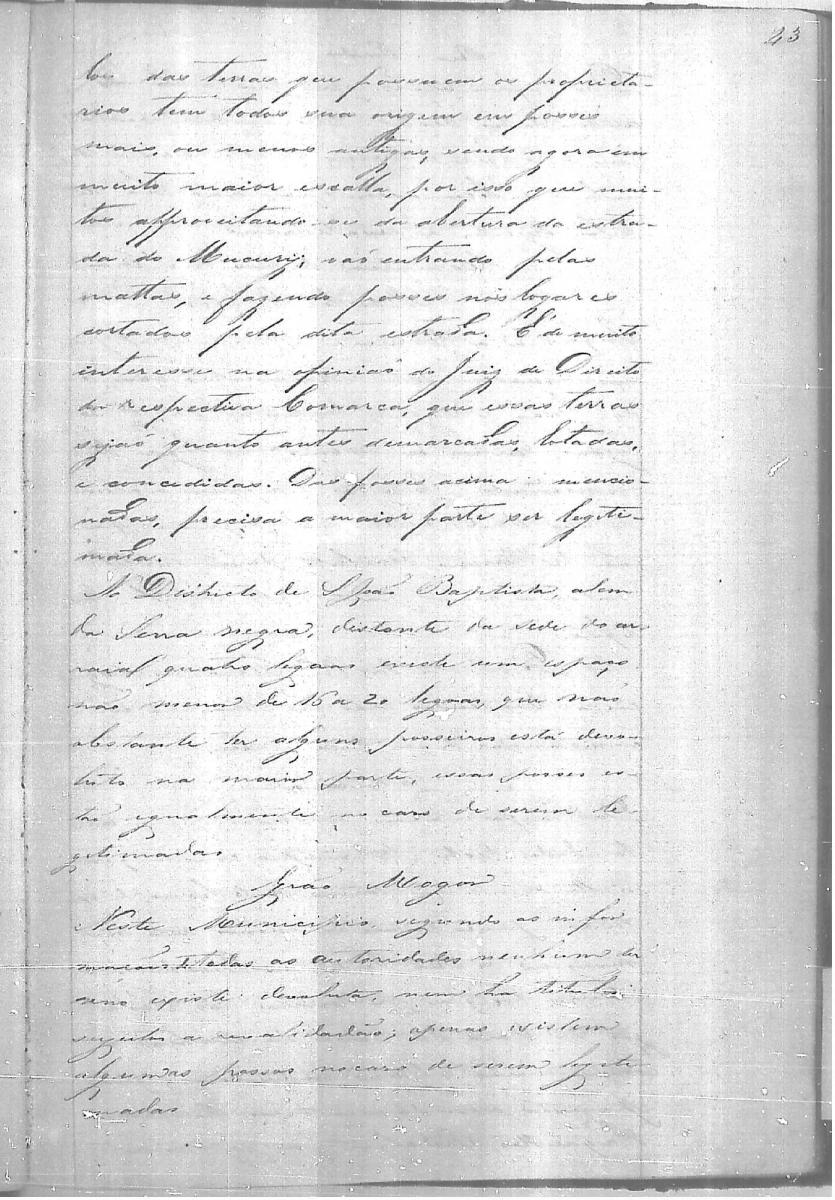 23
los das terras que possuem os proprieta-
rios tem todos sua origem em posses
mais, ou menos antigas, sendo agora em
muito maior escalla, por isso que mui-
tos approveitando-se da abertura da estra-
da do Mucury, vaõ entrando pelas
mattas, e fazendo posses nos logares
cortados pela dita estrada. É de muito
interesse na opiniaõ do Juiz de Direito
da respectiva Comarca, que essas terras
sejaõ quanto antes demarcadas, lotadas,
e concedidas. Das posses acima mencio-
nadas, precisa a maior parte ser legiti-
mada.
No Districto de S. Joaõ Baptista, alem
da Serra negra, distante da sede do ar-
raial quatro legoas existe um espaço
naõ menor de 16 a 20 legoas, que naõ
obstante ter alguns posseiros está devo-
luto na maior parte, essas posses es-
taõ egualmente no caso de serem le-
gitimadas
Graõ Mogor
Neste Municipio, segundo as infor
maçoes de todas as autoridades nenhum ter
reno existe devoluto, nem ha titulos
sugeitos a revalidaçaõ; apenas existem
algumas posses no caso de serem legiti
madas